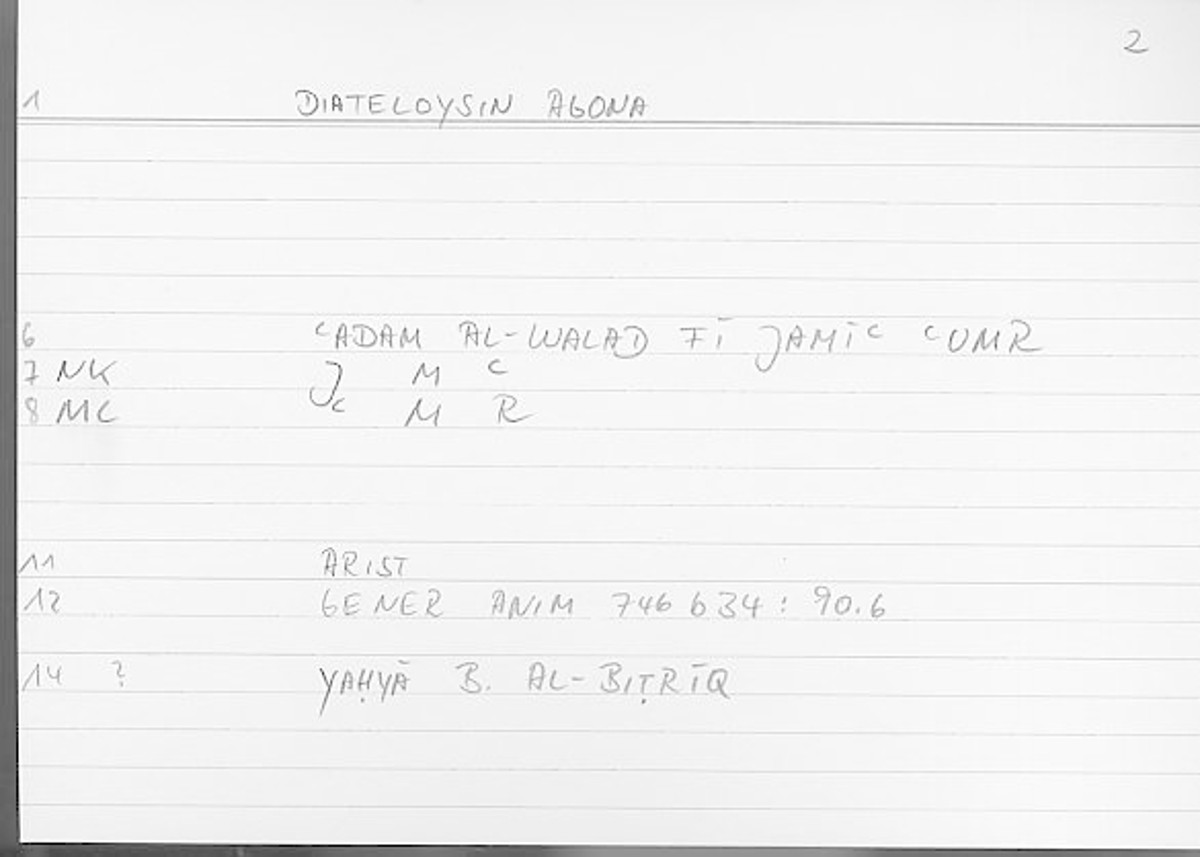 2
1 DIATELOYSIN AGONA
6 ʿADAM AL-WALAD FĪ JAMĪʿ ʿUMR
7 NK J M ʿ
8 MC ʿ M R
11 ARIST
12 GENER ANIM 746 b 34 : 90.6
14 ? YAḤYĀ B. AL-BIṬRĪQ